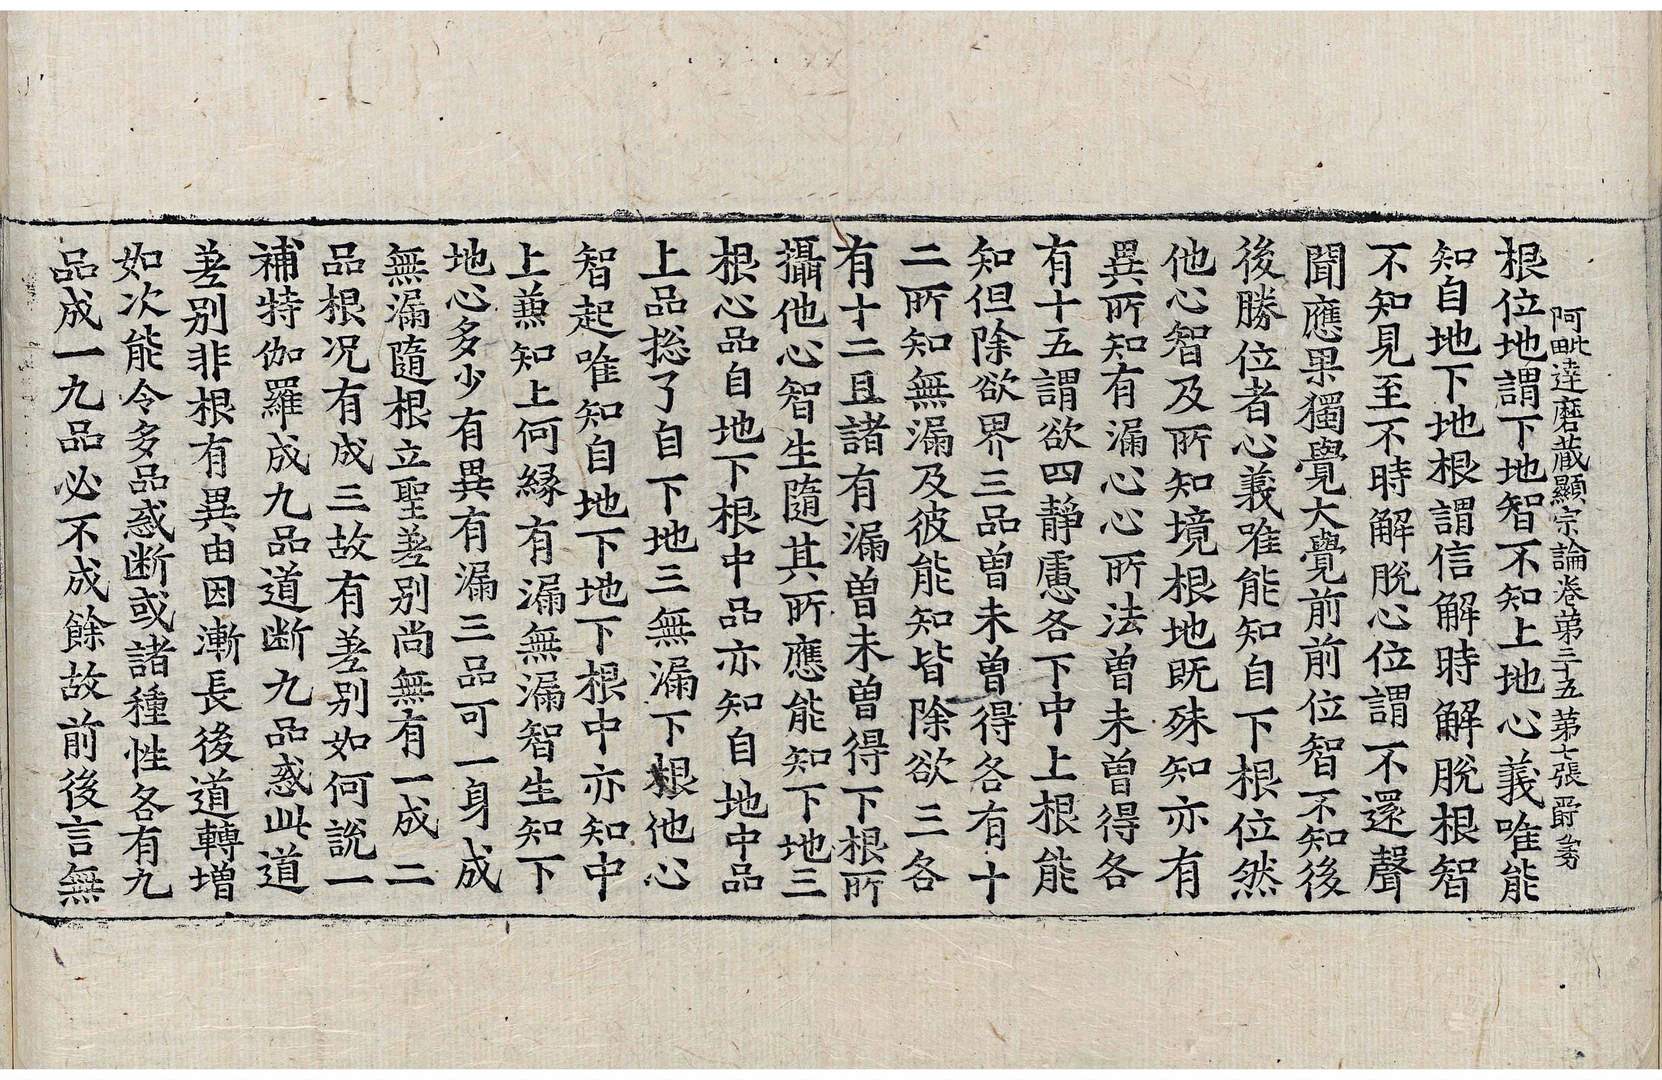 阿毗達磨蔵顯宗論卷第三十五 第七張 爵
根位地謂下地智不知上地心義唯能
知自地下地根謂信解時解脫根智
不知見至不時解脫心位謂不還聲
聞應果獨覺大覺前前位智不知後
後勝位者心義唯能知自下根位然
他心智及所知境根地既殊知亦有
異所知有漏心心所法曽未曽得各
有十五謂欲四靜慮各下中上根能
知但除欲界三品曽未曽得各有十
二所知無漏及彼能知皆除欲三各
有十二且諸有漏曽未曽得下根所
攝他心智生隨其所應能知下地三
根心品自地下根中品亦知自地中品
上品捴了自下地三無漏下根他心
智起唯知自地下地下根中亦知中
上兼知上何縁有漏無漏智生知下
地心多少有異有漏三品可一身成
無漏隨根立聖差別尚無有一成二
品根况有成三故有差別如何說一
補特伽羅成九品道断九品惑此道
差別非根有異由因漸長後道轉增
如次能令多品惑断或諸種性各有九
品成一九品必不成餘故前後言無